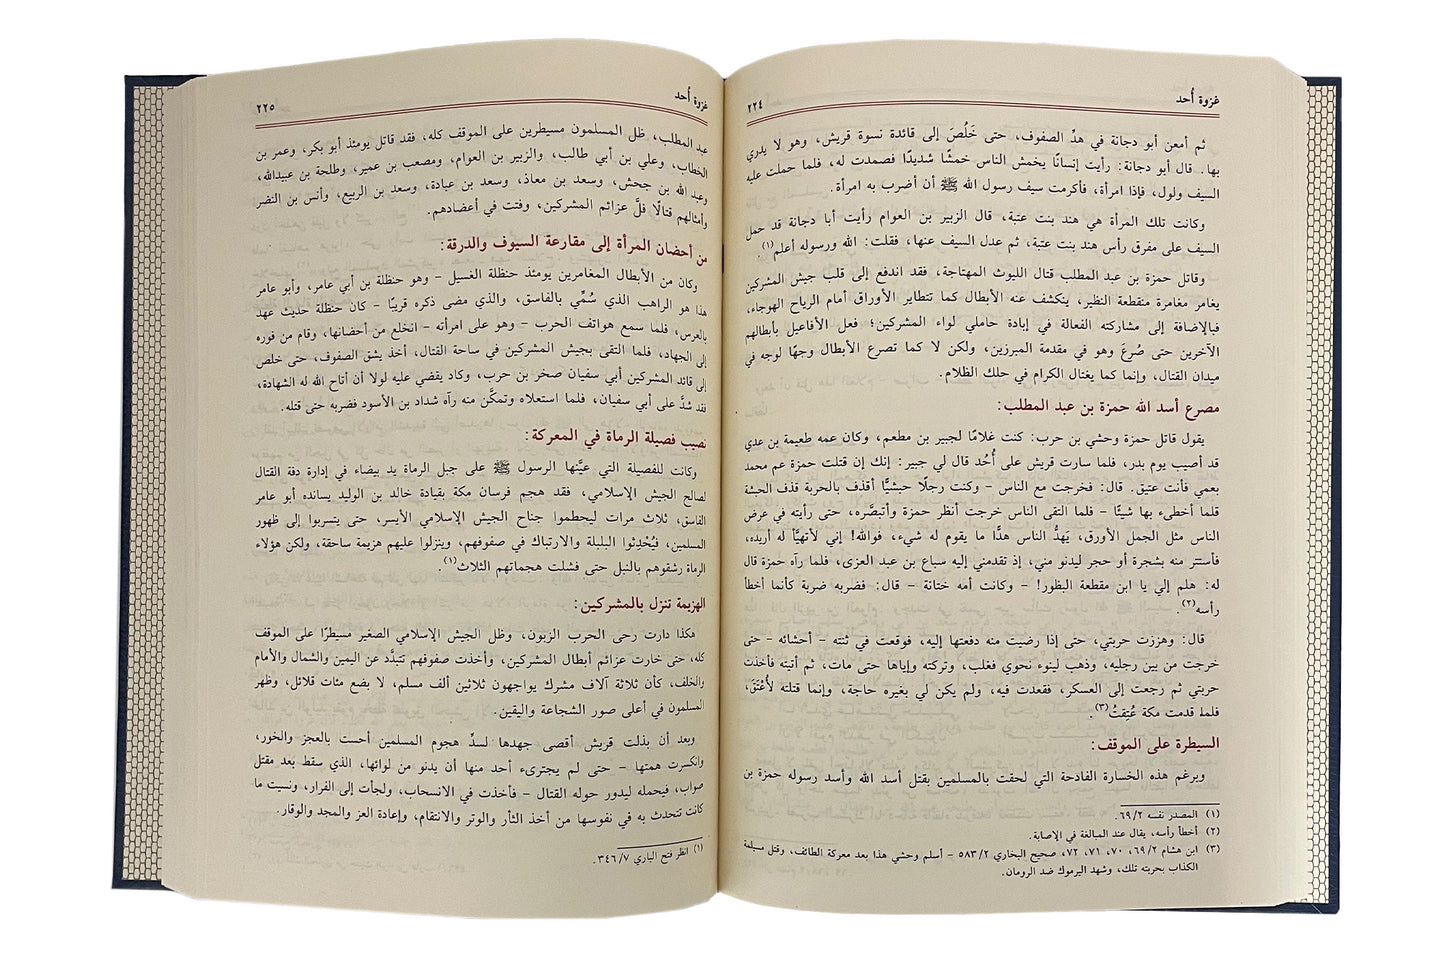 غزوة أُحد
٢٢٤
ثم أمعن أبو دجانة في هدِّ الصفوف، حتى خَلُصَ إلى قائدة نسوة قريش، وهو لا يدري
بها. قال أبو دجانة: رأيت إنسانًا يخمش الناس خمشًا شديدًا فصمدت له، فلما حملت عليه
السيف ولول، فإذا امرأة، فأكرمت سيف رسول الله ﷺ أن أضرب به امرأة.
وكانت تلك المرأة هي هند بنت عتبة، قال الزبير بن العوام رأيت أبا دجانة قد حمل
السيف على مفرق رأس هند بنت عتبة، ثم عدل السيف عنها، فقلت: الله ورسوله أعلم(١).
وقاتل حمزة بن عبد المطلب قتال الليوث المهتاجة، فقد اندفع إلى قلب جيش المشركين
يغامر مغامرة منقطعة النظير، ينكشف عنه الأبطال كما تتطاير الأوراق أمام الرياح الهوجاء،
فبالإضافة إلى مشاركته الفعالة في إبادة حاملي لواء المشركين؛ فعل الأفاعيل بأبطالهم
الآخرين حتى صُرِعَ وهو في مقدمة المبرزين، ولكن لا كما تصرع الأبطال وجهًا لوجه في
ميدان القتال، وإنما كما يغتال الكرام في حلك الظلام.
مصرع أسد الله حمزة بن عبد المطلب:
يقول قاتل حمزة وحشي بن حرب: كنت غلامًا لجبير بن مطعم، وكان عمه طعيمة بن عدي
قد أصيب يوم بدر، فلما سارت قريش على أُحُد قال لي جبير: إنك إن قتلت حمزة عم محمد
بعمي فأنت عتيق. قال: فخرجت مع الناس – وكنت رجلًا حبشيًّا أقذف بالحربة قذف الحبشة
قلما أخطىء بها شيئًا – فلما التقى الناس خرجت أنظر حمزة وأتبصَّره، حتى رأيته في عرض
الناس مثل الجمل الأورق، يَهدُّ الناس هدًّا ما يقوم له شيء، فوالله! إني لأتهيَّأ له أريده،
فأستتر منه بشجرة أو حجر ليدنو مني، إذ تقدمني إليه سباع بن عبد العزى، فلما رآه حمزة قال
له: هلم إلي يا ابن مقطعة البظور! – وكانت أمه ختانة – قال: فضربه ضربة كأنما أخطأ
رأسه(٢).
قال: وهززت حربتي، حتى إذا رضيت منه دفعتها إليه، فوقعت في ثنته – أحشائه – حتى
خرجت من بين رجليه، وذهب لينوء نحوي فغلب، وتركته وإياها حتى مات، ثم أتيته فأخذت
حربتي ثم رجعت إلى العسكر، فقعدت فيه، ولم يكن لي بغيره حاجة، وإنما قتلته لأُعْتَقَ،
فلما قدمت مكة عُتِقتُ(٣).
السيطرة على الموقف:
وبرغم هذه الخسارة الفادحة التي لحقت بالمسلمين بقتل أسد الله وأسد رسوله حمزة بن
(١) المصدر نفسه ٦٩/٢.
(٢) أخطأ رأسه، يقال عند المبالغة في الإصابة.
(٣) ابن هشام ٦٩/٢، ٧٠، ٧١، ٧٢، صحيح البخاري ٥٨٣/٢ – أسلم وحشي هذا بعد معركة الطائف، وقتل مسيلمة
الكذاب بحربته تلك، وشهد اليرموك ضد الرومان.
غزوة أُحد
٢٢٥
عبد المطلب، ظل المسلمون مسيطرين على الموقف كله، فقد قاتل يومئذ أبو بكر، وعمر بن
الخطاب، وعلي بن أبي طالب، والزبير بن العوام، ومصعب بن عمير، وطلحة بن عبيدالله،
وعبد الله بن جحش، وسعد بن معاذ، وسعد بن عبادة، وسعد بن الربيع، وأنس بن النضر
وأمثالهم قتالًا فلَّ عزائم المشركين، وفتت في أعضادهم.
من أحضان المرأة إلى مقارعة السيوف والدرقة:
وكان من الأبطال المغامرين يومئذ حنظلة الغسيل – وهو حنظلة بن أبي عامر، وأبو عامر
هذا هو الراهب الذي سُمِّي بالفاسق، والذي مضى ذكره قريبًا – كان حنظلة حديث عهد
بالعرس، فلما سمع هواتف الحرب – وهو على امرأته – انخلع من أحضانها، وقام من فوره
إلى الجهاد، فلما التقى بجيش المشركين في ساحة القتال، أخذ يشق الصفوف، حتى خلص
إلى قائد المشركين أبي سفيان صخر بن حرب، وكاد يقضي عليه لولا أن أتاح الله له الشهادة،
فقد شدَّ على أبي سفيان، فلما استعلاه وتمكَّن منه رآه شداد بن الأسود فضربه حتى قتله.
نصيب فصيلة الرماة في المعركة:
وكانت للفصيلة التي عيَّنها الرسول ﷺ على جبل الرماة يد بيضاء في إدارة دفة القتال
لصالح الجيش الإسلامي، فقد هجم فرسان مكة بقيادة خالد بن الوليد يسانده أبو عامر
الفاسق، ثلاث مرات ليحطموا جناح الجيش الإسلامي الأيسر، حتى يتسربوا إلى ظهور
المسلمين، فيُحْدِثوا البلبلة والارتباك في صفوفهم، وينزلوا عليهم هزيمة ساحقة، ولكن هؤلاء
الرماة رشقوهم بالنبل حتى فشلت هجماتهم الثلاث(١).
الهزيمة تنزل بالمشركين:
هكذا دارت رحى الحرب الزبون، وظل الجيش الإسلامي الصغير مسيطرًا على الموقف
كله، حتى خارت عزائم أبطال المشركين، وأخذت صفوفهم تتبدَّد عن اليمين والشمال والأمام
والخلف، كأن ثلاثة آلاف مشرك يواجهون ثلاثين ألف مسلم، لا بضع مئات قلائل، وظهر
المسلمون في أعلى صور الشجاعة واليقين.
وبعد أن بذلت قريش أقصى جهدها لسدِّ هجوم المسلمين أحست بالعجز والخور،
وانكسرت همتها – حتى لم يجترىء أحد منها أن يدنو من لوائها، الذي سقط بعد مقتل
صواب، فيحمله ليدور حوله القتال – فأخذت في الانسحاب، ولجأت إلى الفرار، ونسيت ما
كانت تتحدث به في نفوسها من أخذ الثأر والوتر والانتقام، وإعادة العز والمجد والوقار.
(١) انظر فتح الباري ٣٤٦/٧.